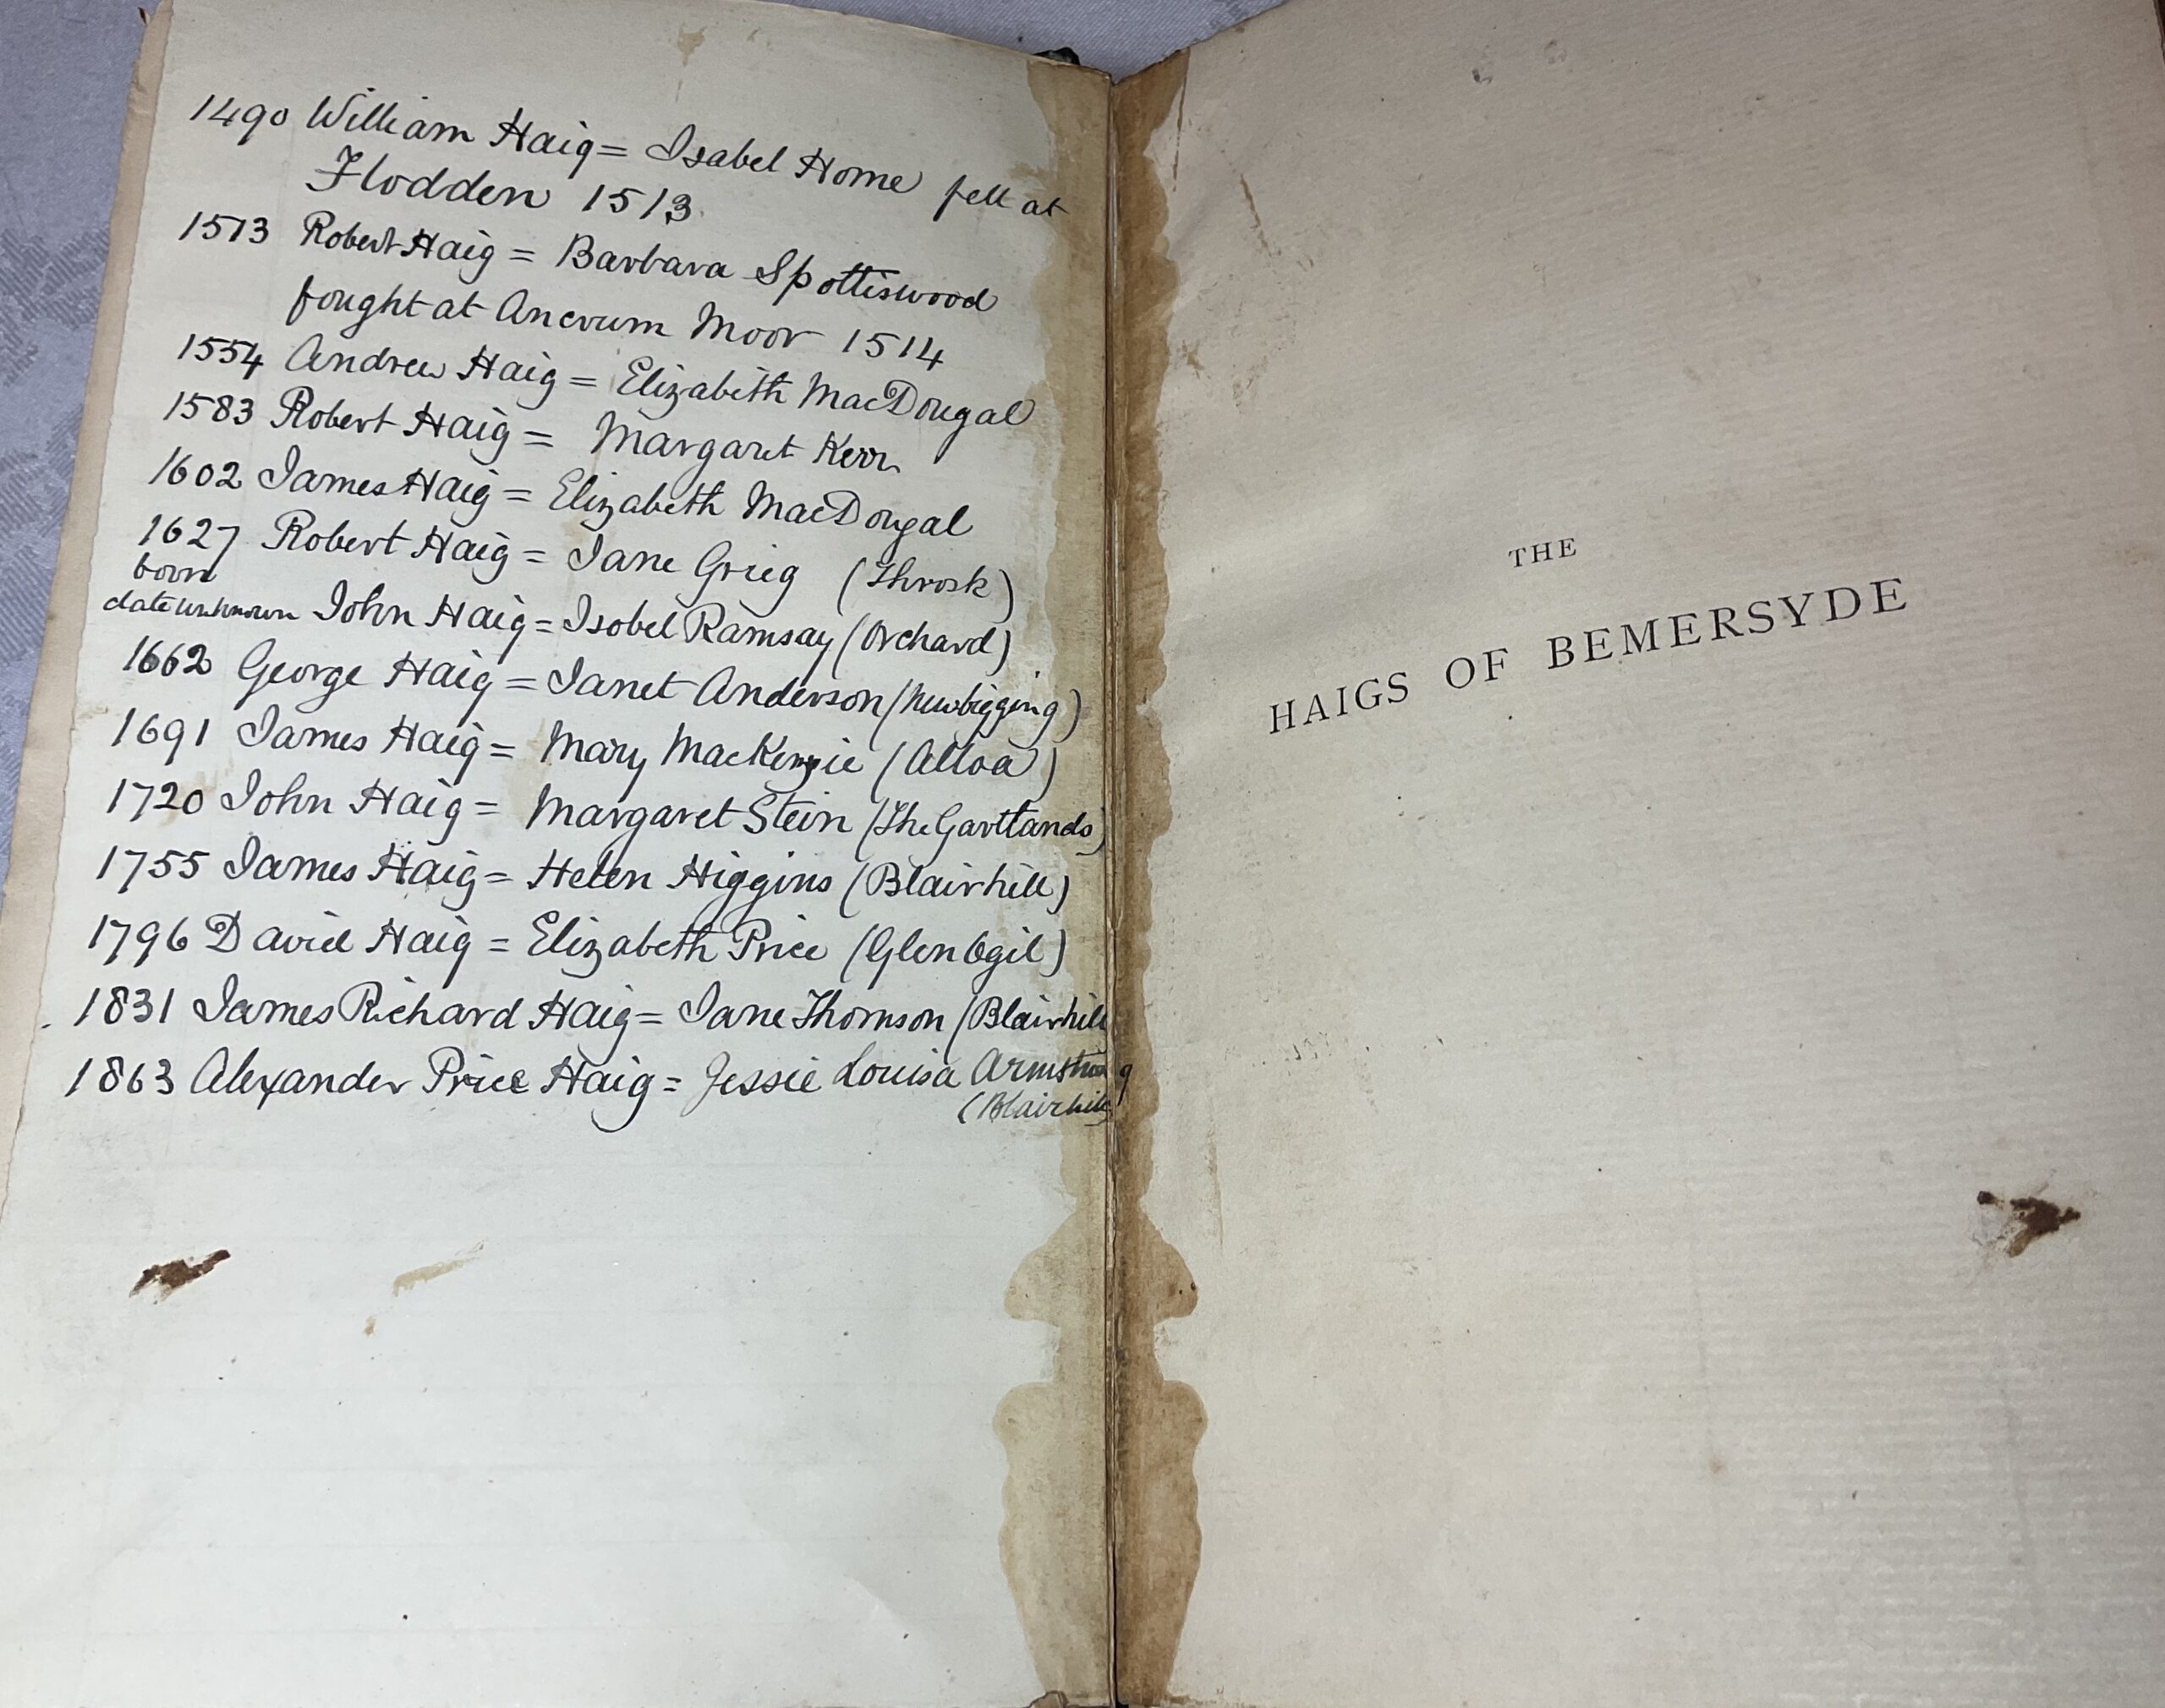 1490 William Haig = Isabel Home fell at
Flodden 1513
1513 Robert Haig = Barbara Spottiswood
fought at Ancrum Moor 1514
1554 Andrew Haig = Elizabeth MacDougal
1583 Robert Haig = Margaret Kerr
1602 James Haig = Elizabeth MacDougal
1627 Robert Haig = Jane Grieg (Throsk)
born
date unknown John Haig = Isobel Ramsay (Orchard)
1662 George Haig = Janet Anderson (Newbigging)
1691 James Haig = Mary MacKenzie (Alloa)
1720 John Haig = Margaret Stein (The Gartlands)
1755 James Haig = Helen Higgins (Blairhill)
1796 David Haig = Elizabeth Price (Glen Ogil)
1831 James Richard Haig = Jane Thomson (Blairhill
1863 Alexander Price Haig = Jessie Louisa Armstrong
(Blairhill)
THE
HAIGS OF BEMERSYDE